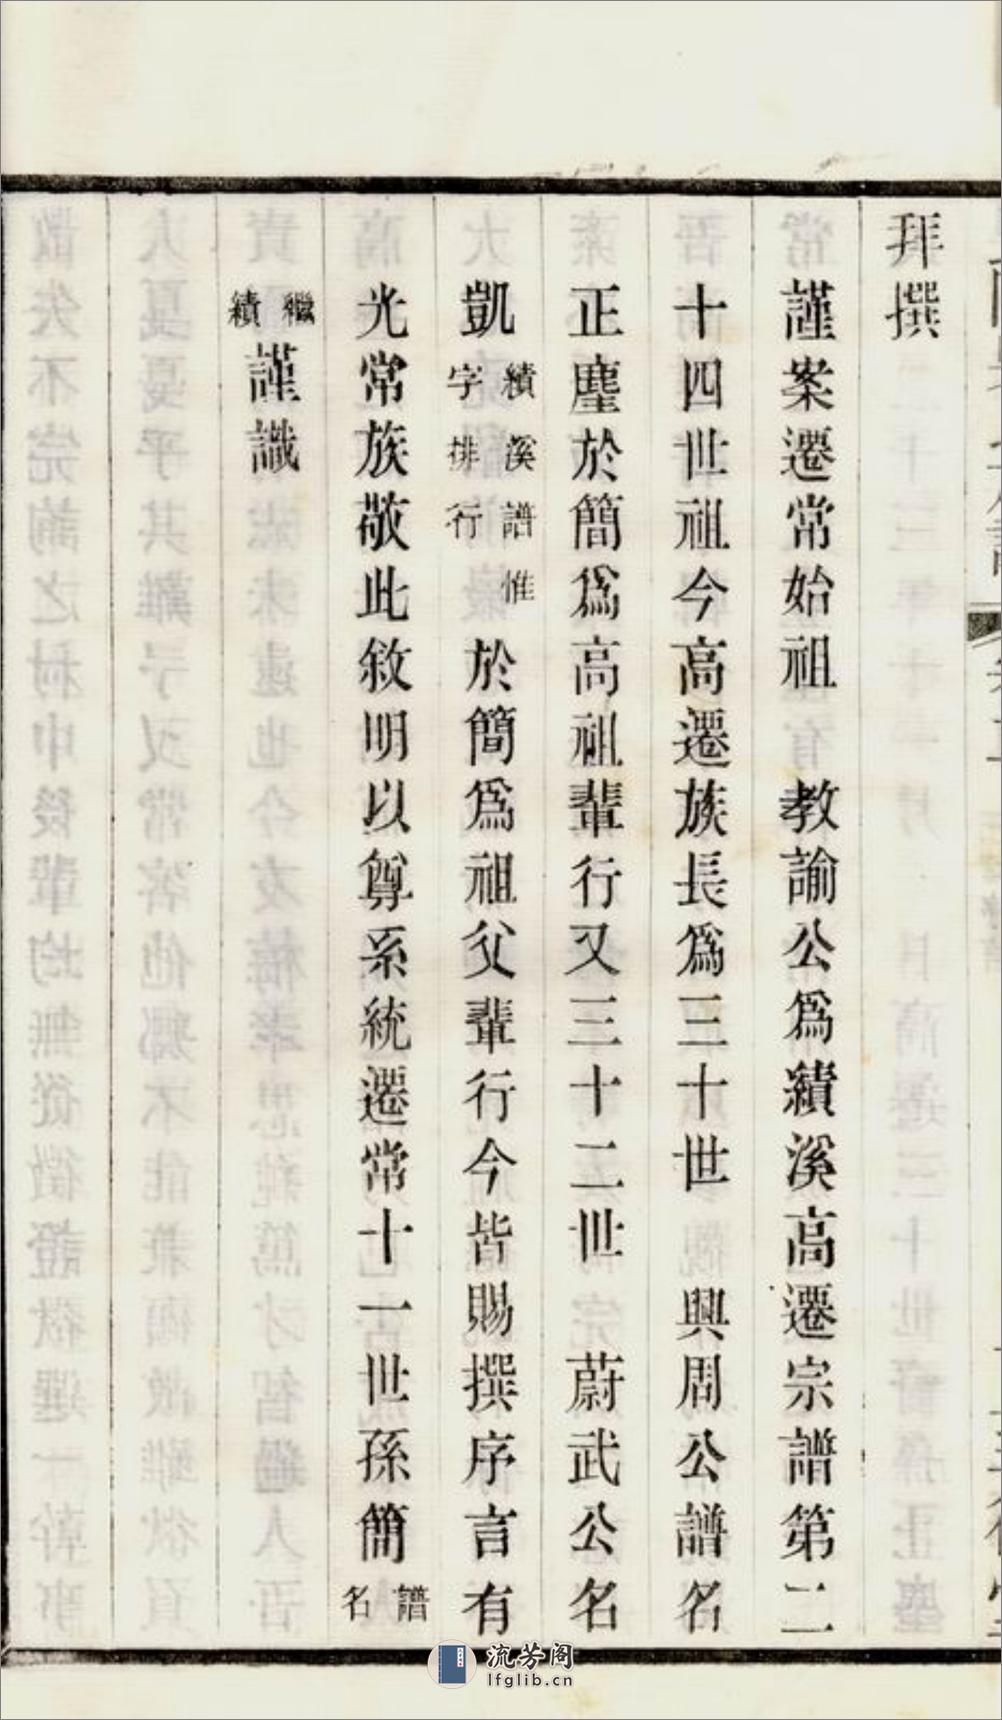 拜撰
謹案遷常始祖　教諭公爲績溪高遷宗譜第二
十四世祖今高遷族長爲三十世　興周公譜名
正塵於簡爲高祖輩行又三十二世　蔚武公名
凱績溪譜惟字排行於簡爲祖父輩行今皆賜撰序言有
光常族敬此敘明以尊系統遷常十一世孫簡譜名
繼績謹識
流芳阁
lfglib.cn